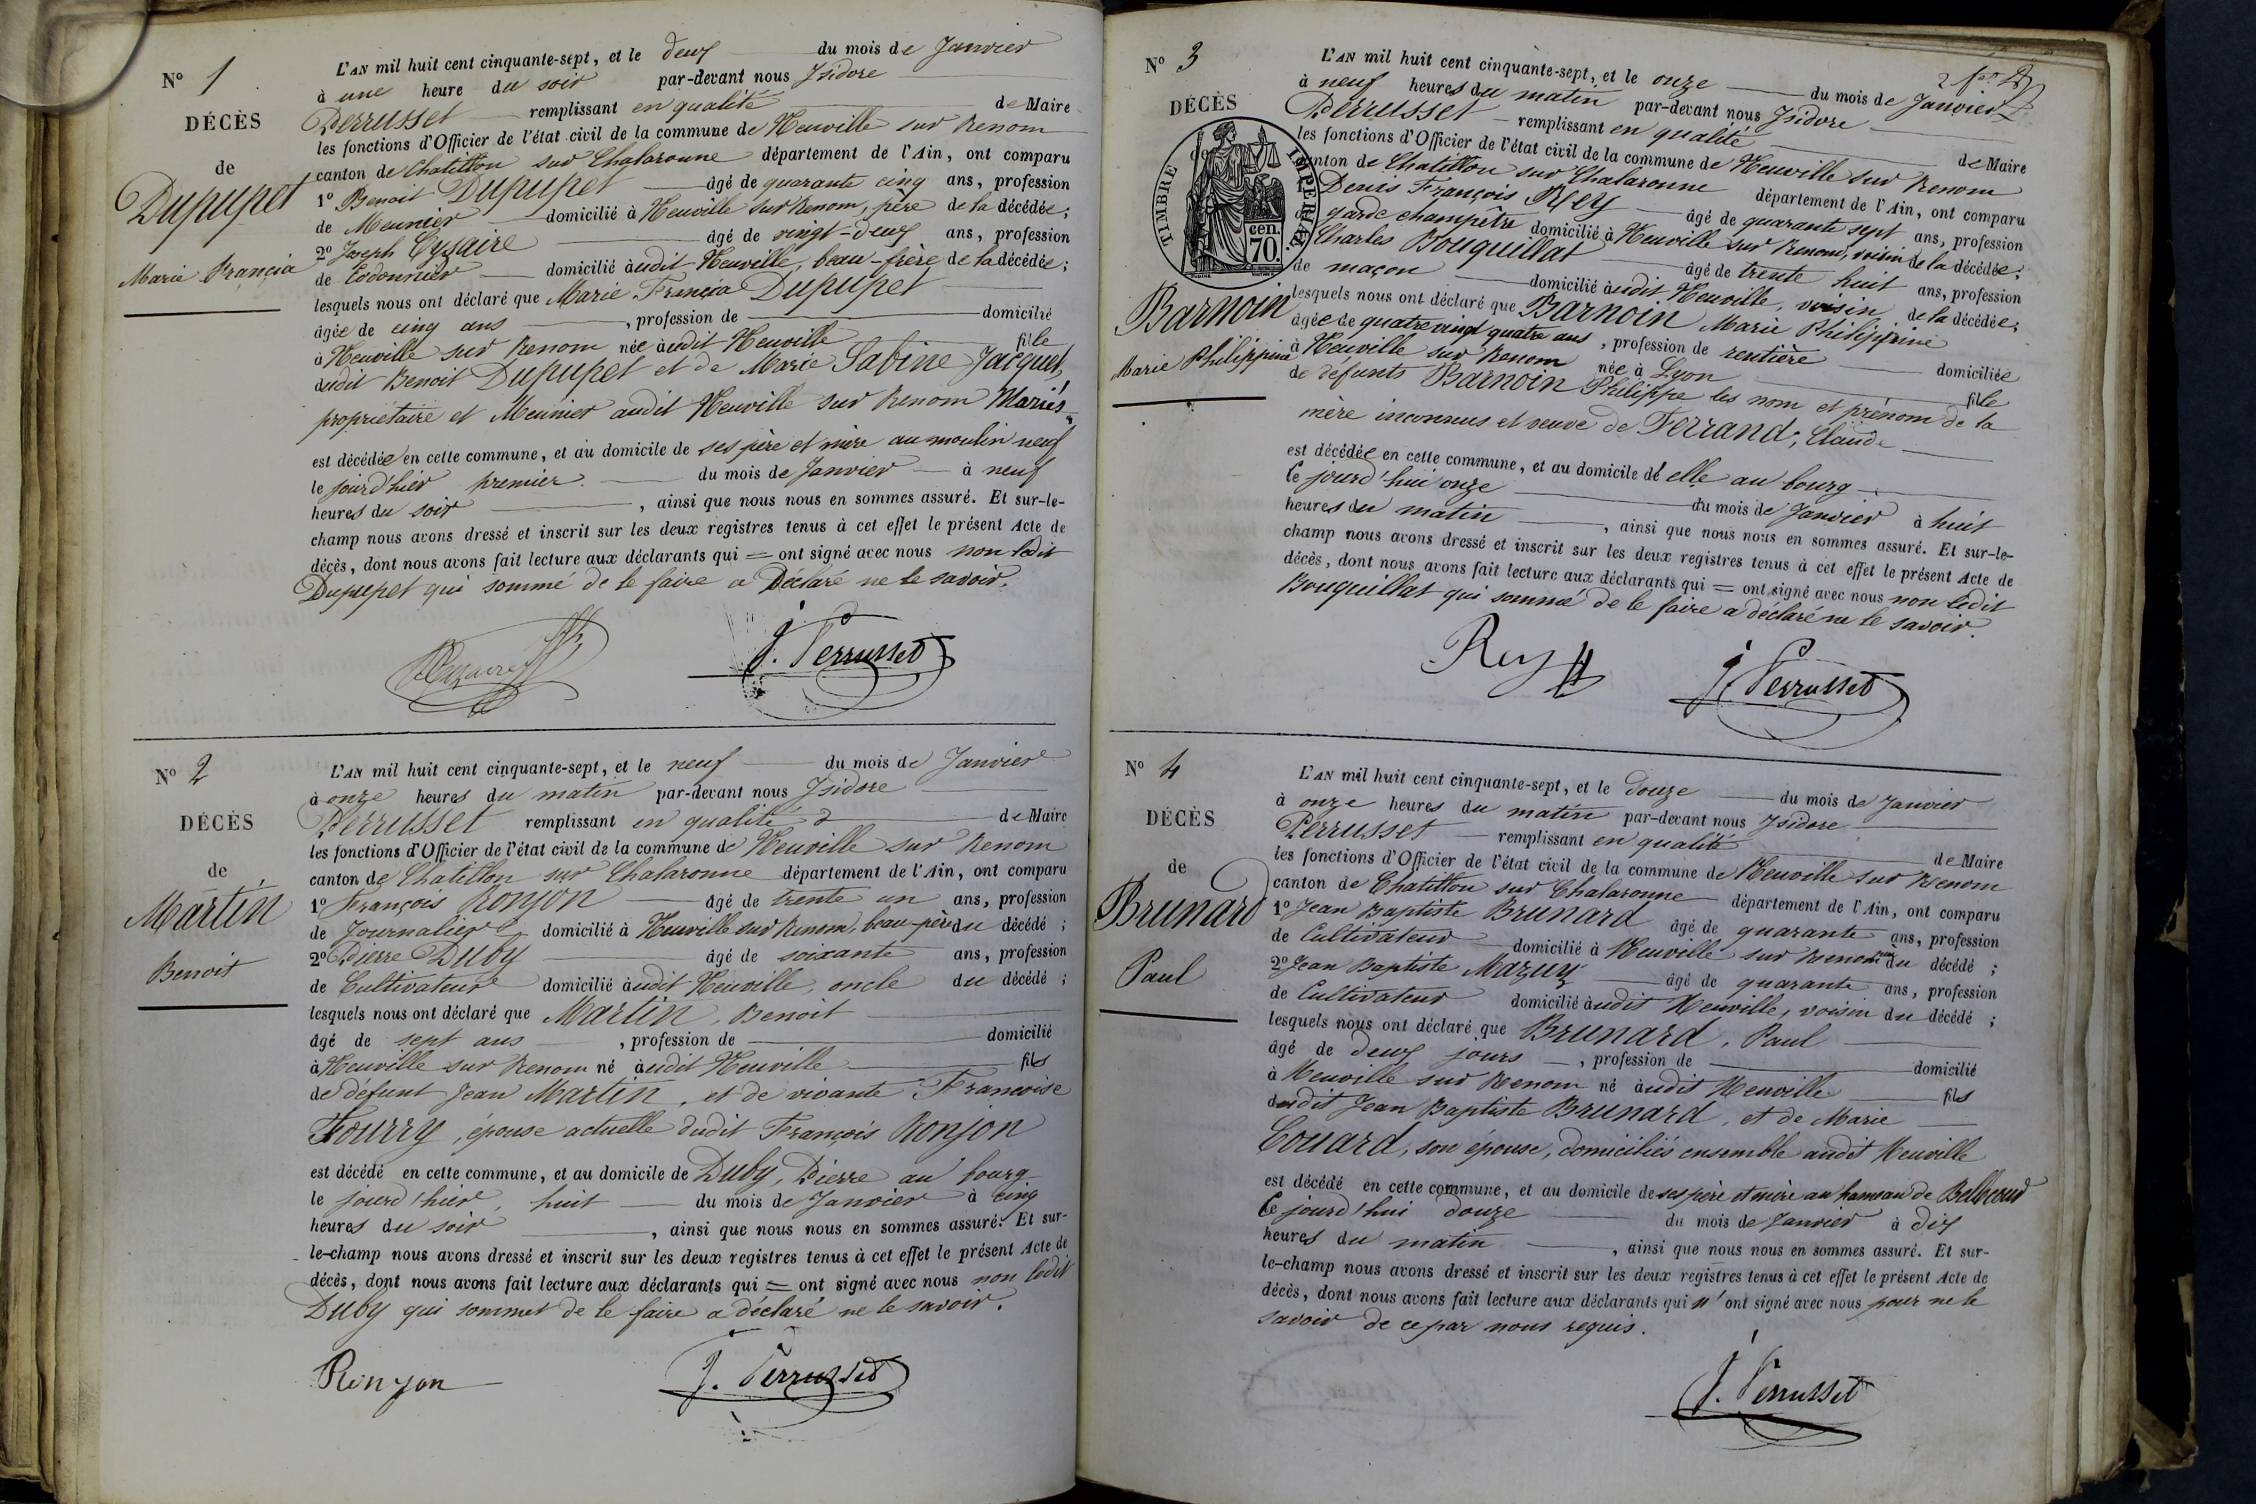 N° 1
DÉCÈS
de
Dupupet
Marie Francia
L'AN mil huit cent cinquante-sept, et le deux du mois de Janvier
à une heure du soir par-devant nous Isidore
Perrusset remplissant en qualité de Maire
les fonctions d'Officier de l'état civil de la commune de Neuville sur Renom
canton de Chatillon sur Chalaronne département de l'Ain, ont comparu
1° Benoit Dupupet âgé de quarante cinq ans, profession
de Meunier domicilié à Neuville sur Renom, père de la décédée;
2° Joseph Cyzaire âgé de vingt-deux ans, profession
de Cordonnier domicilié audit Neuville, beau-frère de la décédée;
lesquels nous ont déclaré que Marie Francia Dupupet
âgée de cinq ans, profession de domicilié
à Neuville sur Renom née audit Neuville fille
dudit Benoit Dupupet et de Marie Sabine Jacquet,
propriétaire et Meunier audit Neuville sur Renom Mariés
est décédée en cette commune, et au domicile de ses père et mère au moulin neuf
le jourd'hier premier du mois de Janvier à neuf
heures du soir, ainsi que nous nous en sommes assuré. Et sur-le-
champ nous avons dressé et inscrit sur les deux registres tenus à cet effet le présent Acte de
décès, dont nous avons fait lecture aux déclarants qui = ont signé avec nous non ledit
Dupupet qui sommé de le faire a Déclaré ne le savoir.
J. Perrusset
N° 2
DÉCÈS
de
Martin
Benoit
L'AN mil huit cent cinquante-sept, et le neuf du mois de Janvier
à onze heures du matin par-devant nous Isidore
Perrusset remplissant en qualité de Maire
les fonctions d'Officier de l'état civil de la commune de Neuville sur Renom
canton de Chatillon sur Chalaronne département de l'Ain, ont comparu
1° François Ronjon âgé de trente un ans, profession
de Journalier domicilié à Neuville sur Renom, beau-père du décédé;
2° Pierre Duby âgé de soixante ans, profession
de Cultivateur domicilié audit Neuville, oncle du décédé;
lesquels nous ont déclaré que Martin, Benoit
âgé de sept ans, profession de domicilié
à Neuville sur Renom né audit Neuville fils
de défunt Jean Martin, et de vivante Françoise
Fourry, épouse actuelle dudit François Ronjon
est décédé en cette commune, et au domicile de Duby, Pierre au bourg
le jourd'hier, huit du mois de Janvier à cinq
heures du soir, ainsi que nous nous en sommes assuré. Et sur-
le-champ nous avons dressé et inscrit sur les deux registres tenus à cet effet le présent Acte de
décès, dont nous avons fait lecture aux déclarants qui = ont signé avec nous non ledit
Duby qui sommet de le faire a déclaré ne le savoir.
Ronjon J. Perrusset
N° 3
DÉCÈS
de
TIMBRE IMPERIAL
70 cen.
Barnoin
Marie Philippine
L'AN mil huit cent cinquante-sept, et le onze du mois de Janvier
à neuf heures du matin par-devant nous Isidore
Perrusset remplissant en qualité de Maire
les fonctions d'Officier de l'état civil de la commune de Neuville sur Renom
canton de Chatillon sur Chalaronne département de l'Ain, ont comparu
Denis François Rey âgé de quarante sept ans, profession
de garde champêtre domicilié à Neuville sur Renom, voisin de la décédée;
Charles Bouquillat âgé de trente huit ans, profession
de maçon domicilié audit Neuville, voisin de la décédée;
lesquels nous ont déclaré que Barnoin Marie Philippine
âgée de quatre vingt quatre ans, profession de rentière domiciliée
à Neuville sur Renom née à Lyon fille
de défunts Barnoin Philippe les nom et prénom de la
mère inconnus et veuve de Ferrand, Claude
est décédée en cette commune, et au domicile d'elle au bourg
le jourd'hui onze du mois de Janvier à huit
heures du matin, ainsi que nous nous en sommes assuré. Et sur-le-
champ nous avons dressé et inscrit sur les deux registres tenus à cet effet le présent Acte de
décès, dont nous avons fait lecture aux déclarants qui = ont signé avec nous non ledit
Bouquillat qui sommé de le faire a déclaré ne le savoir.
Rey J. Perrusset
N° 4
DÉCÈS
de
Brunard
Paul
L'AN mil huit cent cinquante-sept, et le douze du mois de Janvier
à onze heures du matin par-devant nous Isidore
Perrusset remplissant en qualité de Maire
les fonctions d'Officier de l'état civil de la commune de Neuville sur Renom
canton de Chatillon sur Chalaronne département de l'Ain, ont comparu
1° Jean Baptiste Brunard âgé de quarante ans, profession
de Cultivateur domicilié à Neuville sur Renom père du décédé;
2° Jean Baptiste Mazuy âgé de quarante ans, profession
de Cultivateur domicilié audit Neuville, voisin du décédé;
lesquels nous ont déclaré que Brunard, Paul
âgé de deux jours, profession de domicilié
à Neuville sur Renom né audit Neuville fils
dudit Jean Baptiste Brunard, et de Marie
Couard, son épouse, domiciliés ensemble audit Neuville
est décédé en cette commune, et au domicile de ses père et mère au hameau de Bellecour
le jourd'hui douze du mois de Janvier à dix
heures du matin, ainsi que nous nous en sommes assuré. Et sur-
le-champ nous avons dressé et inscrit sur les deux registres tenus à cet effet le présent Acte de
décès, dont nous avons fait lecture aux déclarants qui n'ont signé avec nous pour ne le
savoir de ce par nous requis.
J. Perrusset